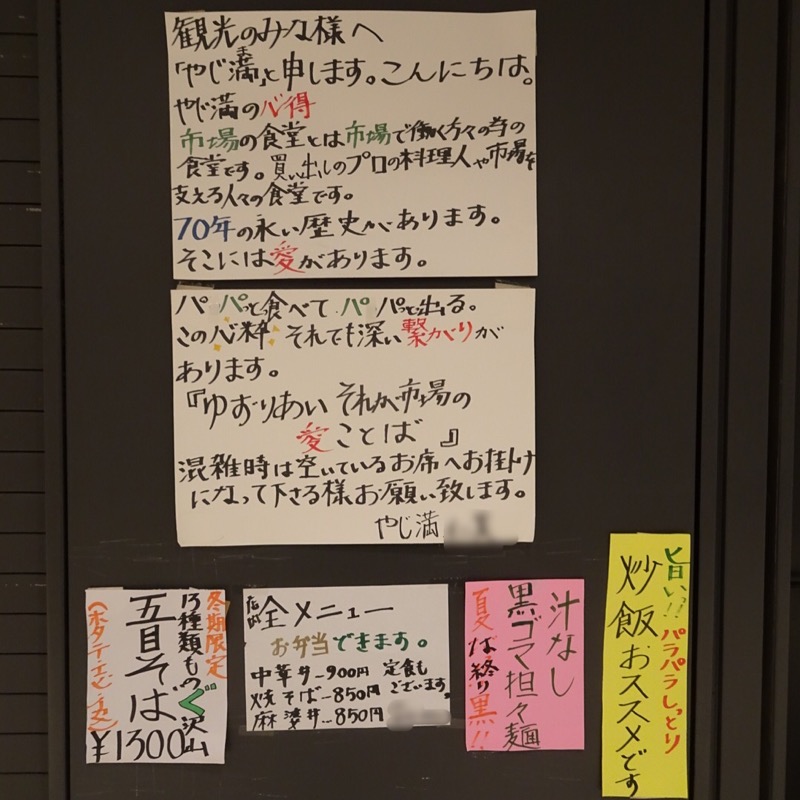 観光のみな様へ
「やじ満」と申します。こんにちは。
やじ満の心得
市場の食堂とは市場で働く方々の為の
食堂です。買い出しのプロの料理人や市場を
支える人々の食堂です。
70年の永い歴史があります。
そこには愛があります。
パパッと食べてパパッと出る。
この心粋 それでも深い繋がりが
あります。
『ゆずりあい それが市場の
愛ことば 』
混雑時は空いているお席へお掛け
になって下さる様お願い致します。
やじ満
冬期限定
13種類もの具沢山
五目そば
(ホタテ・エビ・
¥1300
全メニュー
お弁当できます。
中華丼-900円 定食も
焼そば-850円 ございます。
麻婆丼-850円
汁なし
黒ゴマ担々麺
夏は終り黒!!
旨い!! パラパラしっとり
炒飯おススメです